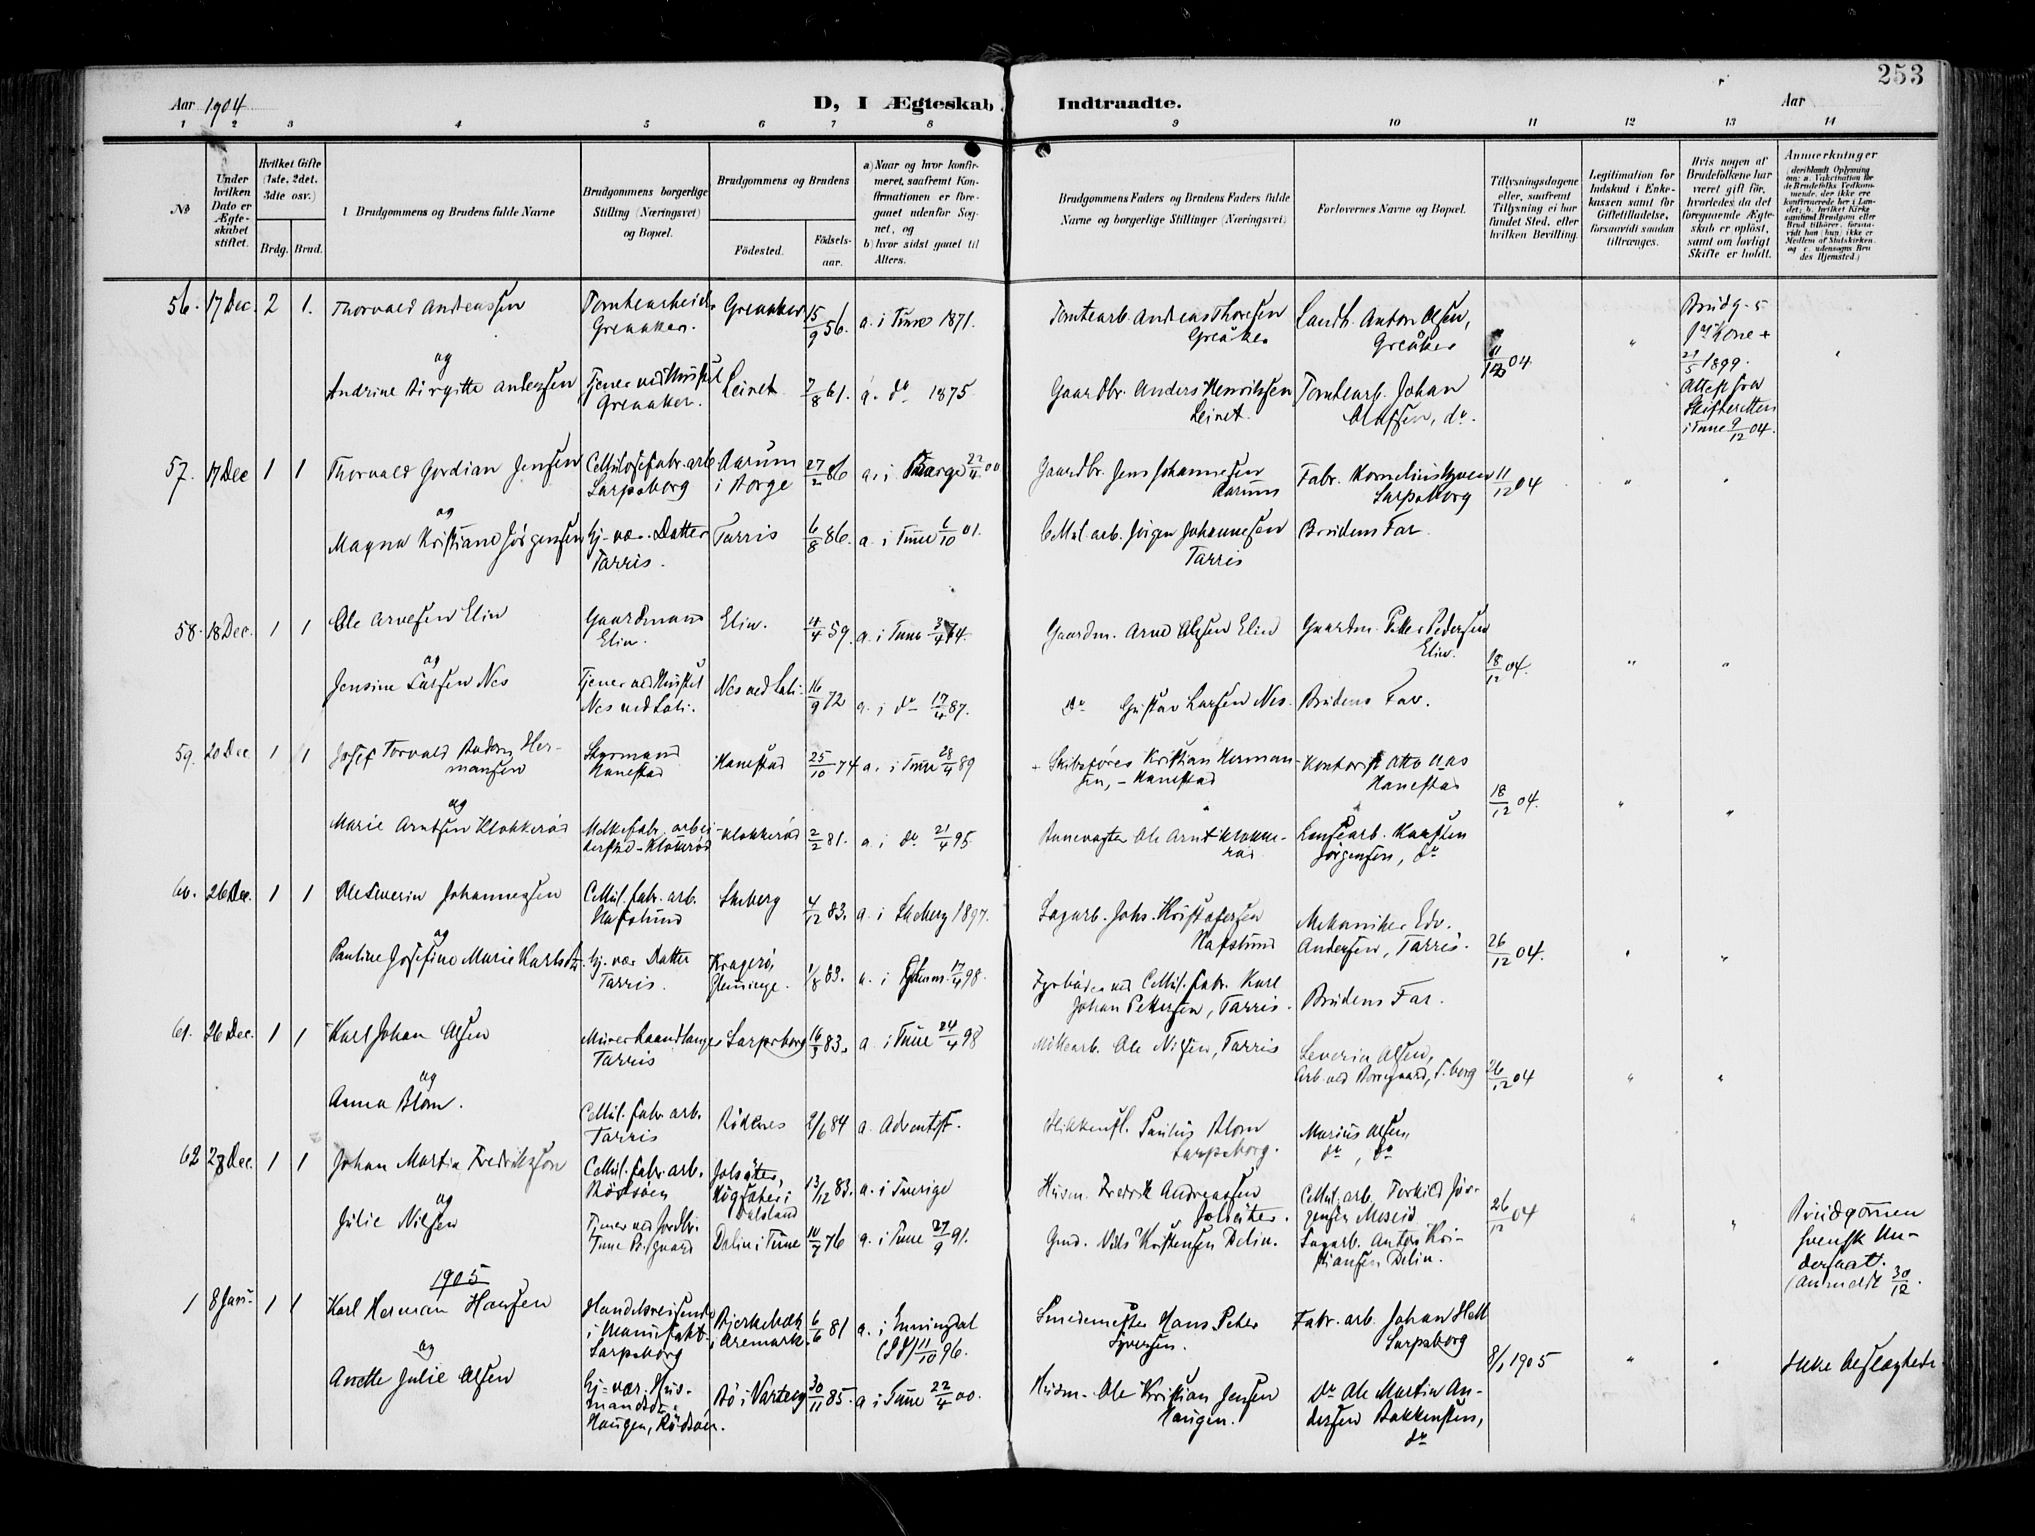 253
Aar 1904
D, I Ægteskab Indtraadte.
Aar
1 2 3 4 5 6 7 8 9 10 11 12 13 14
No
Under hvilken Dato er Ægteskabet stiftet.
Hvilket Gifte (1ste, 2det, 3die osv.)
Brdg. Brud.
Brudgommens og Brudens fulde Navne
Brudgommens borgerlige Stilling (Næringsvei) og Bopæl.
Brudgommens og Brudens
Fødested.
Fødselsaar.
a) Naar og hvor konfirmeret, saafremt Konfirmationen er foregaaet udenfor Sognet, og
b) hvor sidst gaaet til Alters.
Brudgommens Faders og Brudens Faders fulde Navne og borgerlige Stillinger (Næringsvei)
Forlovernes Navne og Bopæl.
Tillysningsdagene eller, saafremt Tillysning ei har fundet Sted, efter hvilken Bevilling.
Legitimation for Indskud i Enkekassen samt for Giftetilladelse, forsaavidt saadan tiltrænges.
Hvis nogen af Brudefolkene har været gift før, hvorledes da det foregaaende Ægteskab er opløst, samt om lovligt Skifte er holdt.
Anmerkninger
56. 17 Dec. 2 1. Thorvald Andreassen
Greaaker. Greaaker 15/9 56. a. i Tune 1871.
Tomtearb. Andreas Thoresen Greåker
Landh. Anton Olsen, Greåker
11/12 04
Brudg.s 1ste Kone + 29/5 1899. Attest fra Skifteretten i Tune 9/12 04.
og
Andrine Birgitte Andersen Tjener ved Huset Greaaker. Leinet 7/8 61. a. do 1875
Gaardbr. Anders Henriksen Leinet.
Tomtearb. Johan Olafsen, do.
57. 17 Dec 1 1 Thorvald Gordian Jensen Cellulosefabr.arb Sarpsborg Aarum i Borge 27/2 86 a. i Borge
Gaardbr. Jens Johannesen Aarum
Fabr. Kornelius Sarpsborg 11/12 04
og
Magna Kristiane Jørgensen Hj. vær. Datter Tarris. Tarris 6/8 86. a. i Tune 6/10 01.
Cellul. arb. Jörgen Johannesen Tarris
Brudens Far
58. 18 Dec. 1 1 Ole Arnesen Elin Gaardmand Elin. Elin. 11/4 59. a. i Tune 3/4 74.
Gaardm. Arne Olsen Elin
Gaardm. Petter Pedersen Elin. 18/12 04.
og
Jensine Larsen Nes Tjener ved Huset Nes ved Sali. Nes ved Sali. 16/9 72 a. i do 17/4 87.
do Gustav Larsen Nes. Brudens Far.
59. 20 Dec 1 1 Josef Torvald Andom Hermansen Styrmand Hanestad Hanestad 25/10 74 a. i Tune 28/4 89
Skibsförer Kristian Hermansen, Hanestad
Kontorist Otto Aas Hanestad 18/12 04.
og
Marie Arntsen Klokkerød Melkefabr. arbeiderske Klokkerød Klokkerød 2/2 81. a. i do 21/4 95
Banevogter Ole Arnt Klokkerød
Lensearb. Karsten Jørgensen, do
60. 26 Dec. 1 1 Ole Severin Johannessen Cellul. fabr. arb. Hafslund Skeberg 4/12 83. a. i Skeberg 1897.
Sagarb. Johs. Kristofersen Hafslund
Mekaniker Edv. Andersen, Tarris. 26/12 04.
og
Pauline Josefine Marie Karlsen Hj. vær Datter Tarris. Kragerø, Glemminge. 1/8 83. a. i Glemm. 17/4 98.
Fyrbøder ved Cellul. fabr. Karl Johan Pettersen, Tarris.
Brudens Far.
61. 26 Dec. 1 1 Karl Johan Olsen Murerhaandlanger Tarris Sarpsborg 16/3 83. a. i Tune 24/4 98
Millearb. Ole Nilsen, Tarris
Severin Olsen, Arb. ved Borregaard, S.borg 26/12 04
og
Anna Blom. Cellul. fabr. arb. Tarris Rödenes 2/6 84 a. Adventist.
Blikkensl. Paulus Blom Sarpsborg.
Marius Olsen, do, do
62 28 Dec. 1 1 Johan Martin Fredriksson Cellul. fabr. arb. Rödsöen Jolsäter, Högsäter i Dalsland 13/12 83. a. i Sverige
Husm. Fredrik Andreassen Jolsäter.
Cellul. arb. Torkild Jörgensen Moseid 26/12 04
Brudgommen svensk Undersaat. (anmeldt 30/12.
og
Julie Nilsen Tjener ved Jordbr. Tune Pr.gaard Delin i Tune 10/7 76 a. i Tune 27/9 91.
Gmd. Nils Kristensen Delin.
Sagarb. Anton Kristiansen Delin.
1905
1 8 Jan. 1 1 Karl Herman Hansen Handelsreisende i Manufakt. Sarpsborg Bjerkebæk i Aremark. 6/6 81 a. i Enningdal 11/10 96.
Smedemester Hans Peter Syversen.
Fabr. arb. Johan Hell Sarpsborg 8/1 1905
Ikke beslægtede
og
Anette Julie Olsen Hj. vær. Husmandsd. Haugen, Rödsöen. Bö i Varteig 30/11 85. a. i Tune 22/4 00.
Husm. Ole Kristian Jensen Haugen.
do Ole Martin Andersen Bakkensten, do